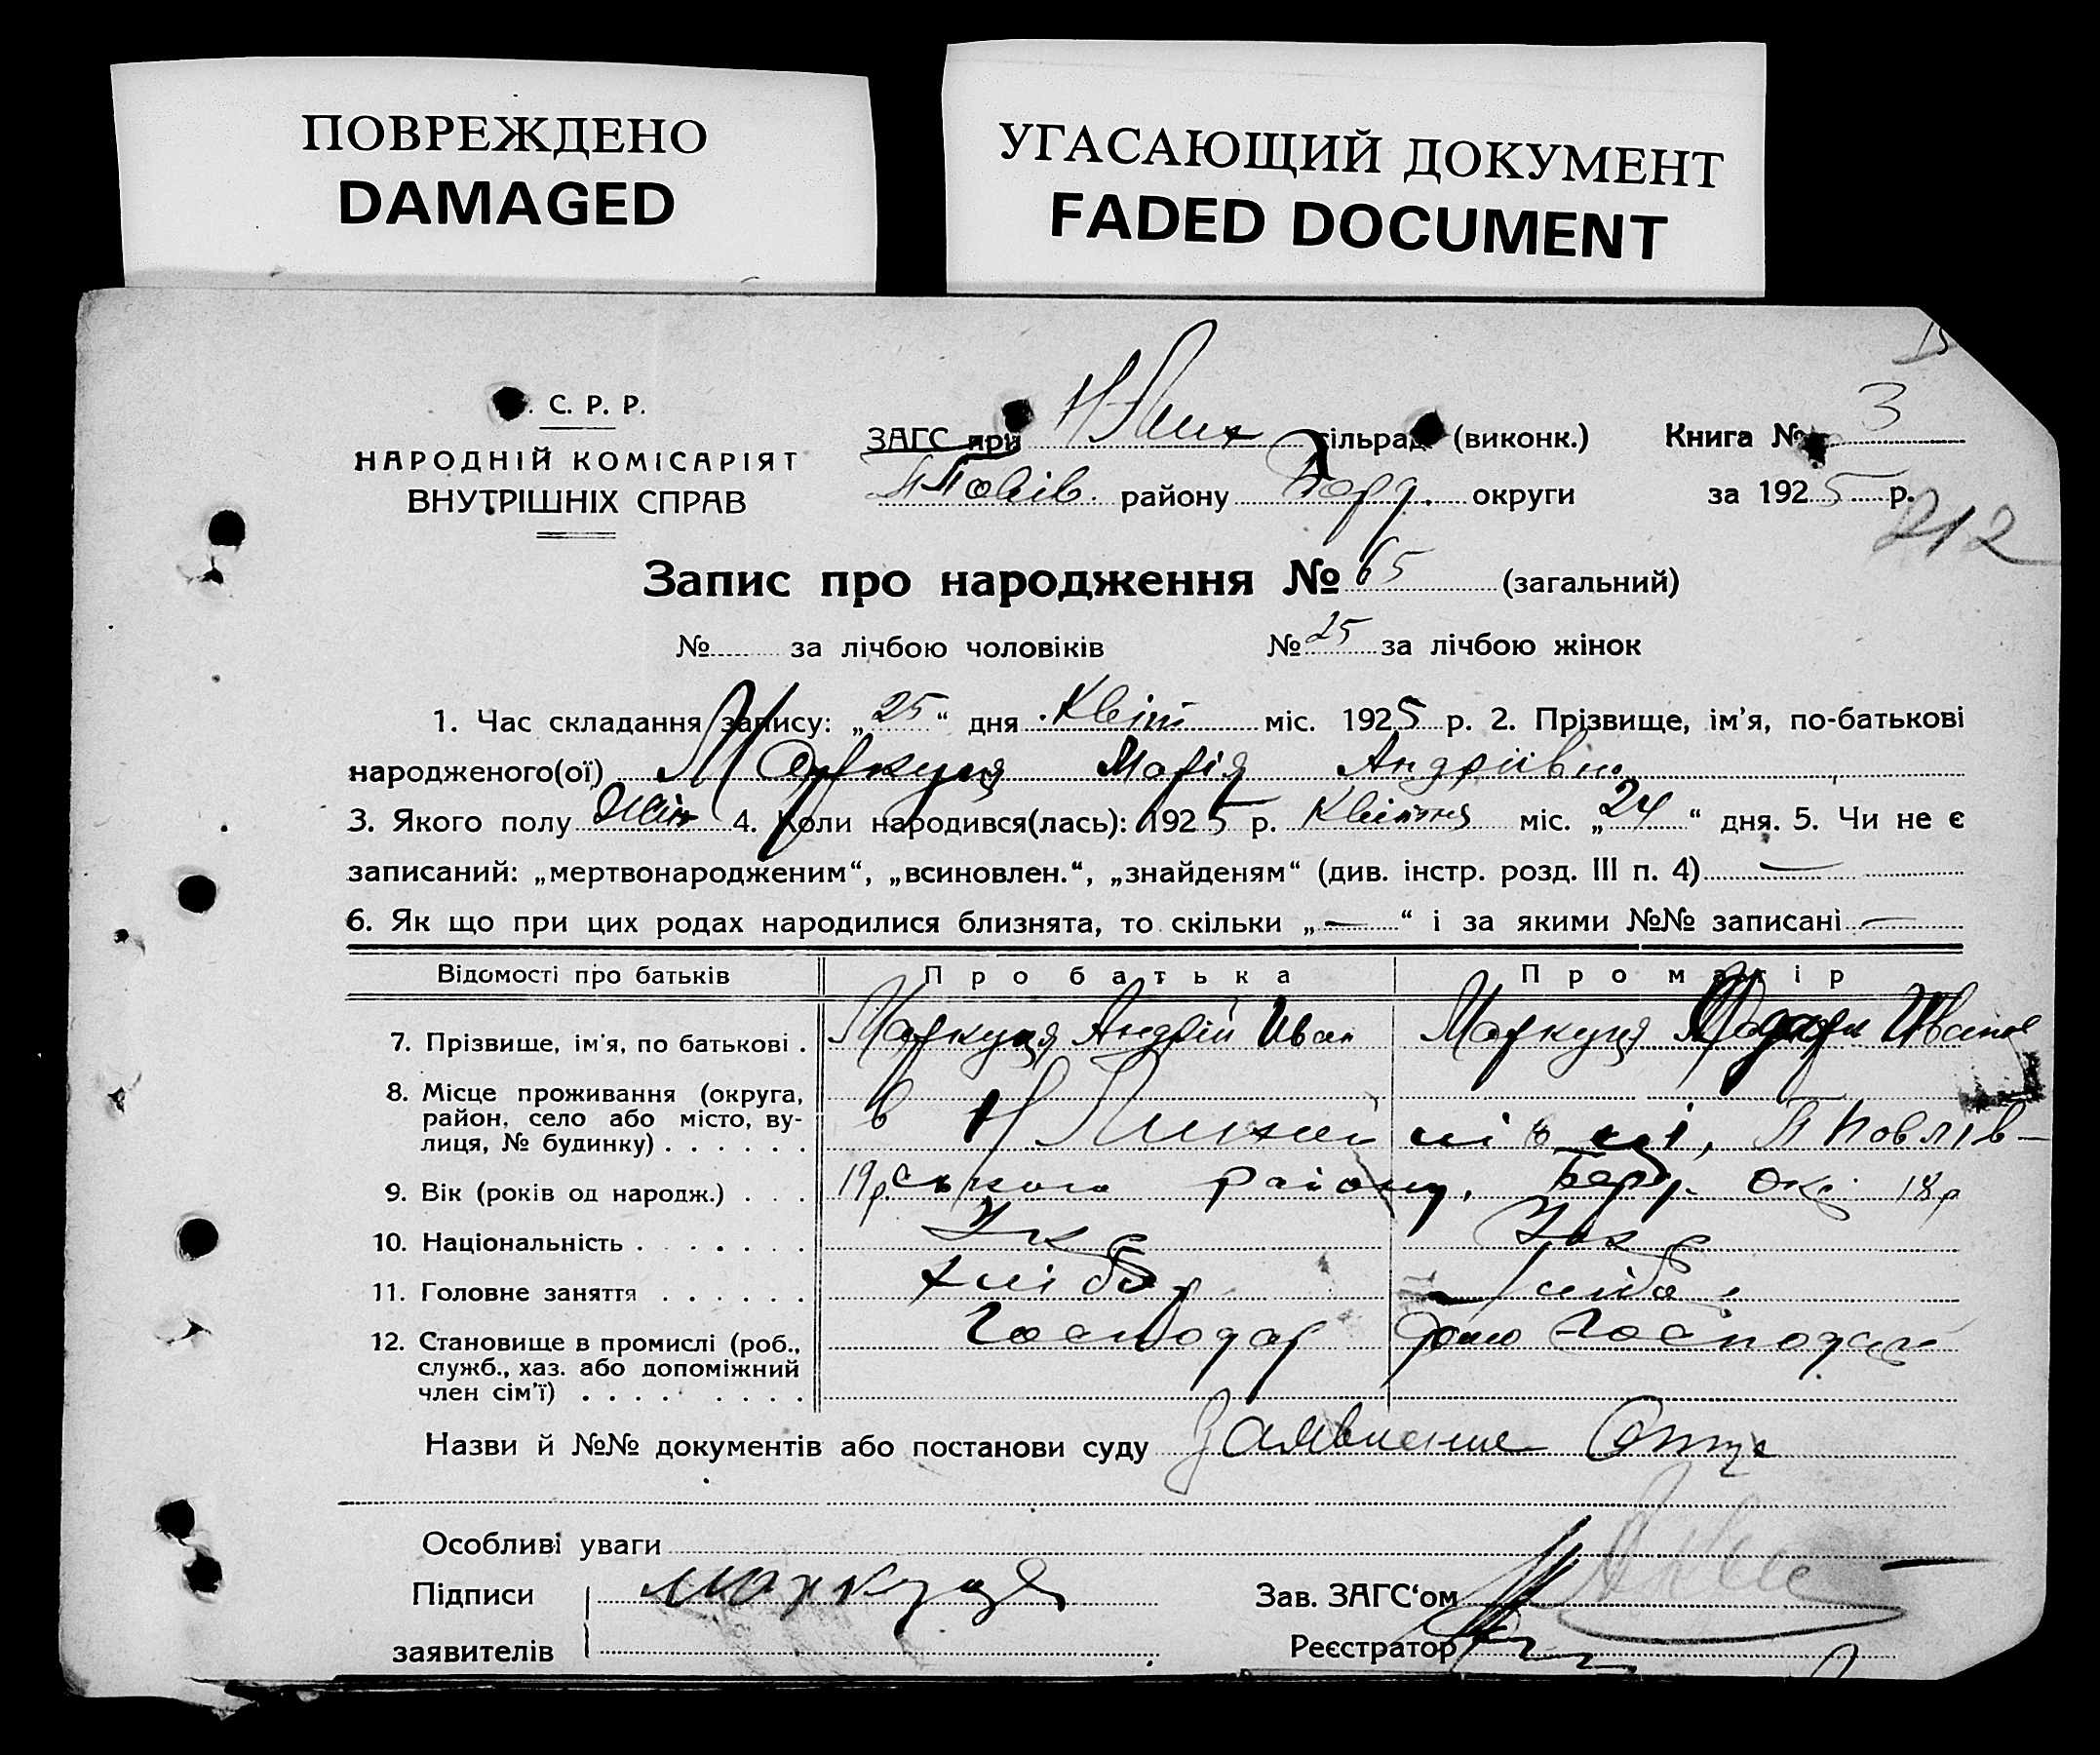 ПОВРЕЖДЕНО
DAMAGED
УГАСАЮЩИЙ ДОКУМЕНТ
FADED DOCUMENT
. С. Р. Р.
НАРОДНІЙ КОМІСАРІЯТ
ВНУТРІШНІХ СПРАВ
ЗАГС при сільрад (виконк.)
району Берд. округи
Книга № 3
за 1925 р.
212
Запис про народження № 65 (загальний)
№ за лічбою чоловіків № 25 за лічбою жінок
1. Час складання запису: „25“ дня Квіт міс. 1925 р. 2. Прізвище, ім'я, по-батькові
народженого(ої) Маркуця Марія Андріівна
3. Якого полу жін 4. Коли народився(лась): 1925 р. Квітня міс. „24“ дня. 5. Чи не є
записаний: „мертвонародженим“, „всиновлен.“, „знайденям“ (див. інстр. розд. III п. 4) —
6. Як що при цих родах народилися близнята, то скільки „—“ і за якими №№ записані —
Відомості про батьків Про батька Про матір
7. Прізвище, ім'я, по батькові . Маркуця Андрій Иван Маркуця Иванов
8. Місце проживання (округа,
район, село або місто, ву-
лиця, № будинку) . . . . . . в Н
9. Вік (років од народж.) . . . 19р ського району, Берд. Окр. 18р
10. Національність . . . . . . Укр Укр
11. Головне заняття . . . . . . хлібор хлібо
12. Становище в промислі (роб.,
служб., хаз. або допоміжний
член сім'ї) . . . . . . . . Господар Домо Господар
Назви й №№ документів або постанови суду Заявление Отца
Особливі уваги
Підписи Маркуця Зав. ЗАГС'ом
заявителів Реєстратор